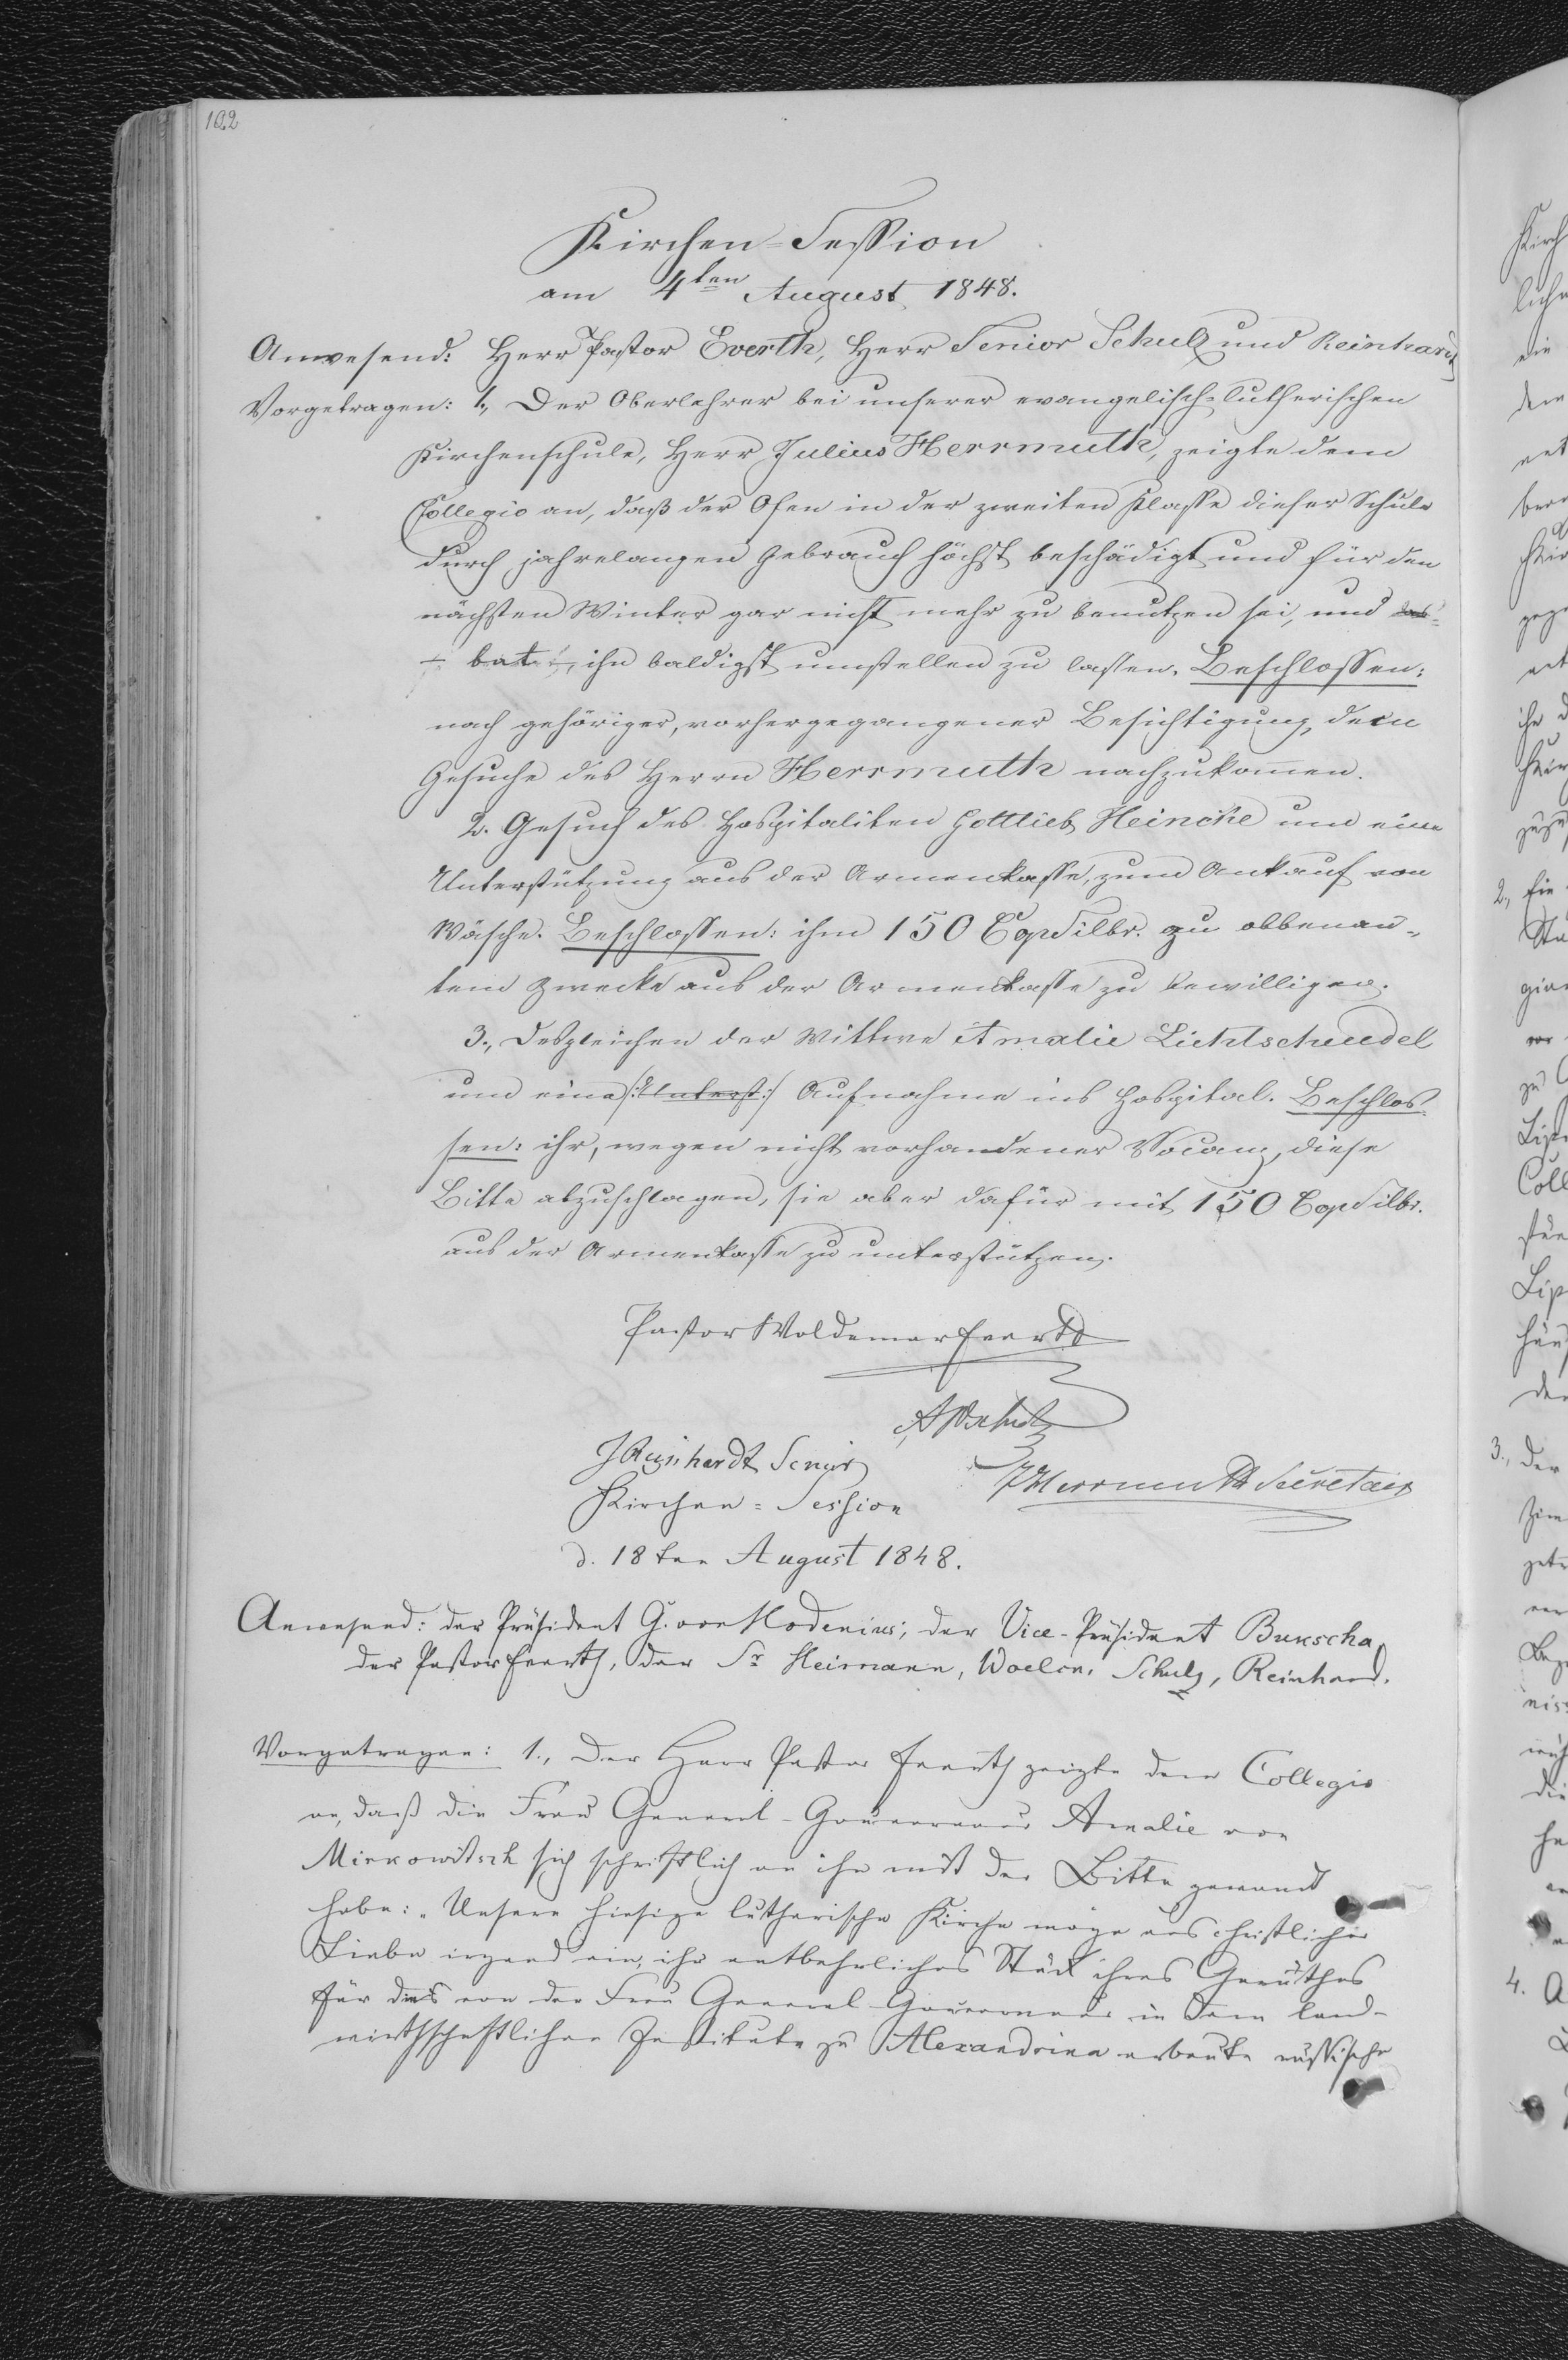 102
Kirchen-Session
am 4ten August 1848.
Anwesend: Herr Pastor Everth, Herr Senior Schulz und Reinhard
Vorgetragen: 1., Der Oberlehrer bei unserer evangelisch-lutherischen
Kirchenschule, Herr Julius Herrmuth, zeigte dem
Collegio an, daß der Ofen in der zweiten Klasse dieser Schule
durch jahrelangen Gebrauch höchst beschädigt und für den
nächsten Winter gar nicht mehr zu benutzen sei, und
bat, ihn baldigst umstellen zu lassen. Beschlossen:
nach gehöriger, vorhergegangener Besichtigung, dem
Gesuche des Herrn Herrmuth nachzukomen.
2. Gesuch des Hospitaliten Gottlieb Heincke um eine
Unterstützung aus der Armenkasse, zum Ankauf von
Wäsche. Beschlossen: ihm 150 Cop Silbr. zu obbenan-
tem Zwecke aus der Armenkasse zu bewilligen.
3., Desgleichen der Wittwe Amalie Lichtscheudel
um eine /:Unterst:/ Aufnahme ins Hospital. Beschlos-
sen: ihr, wegen nicht vorhandener Vocanz, diese
Bitte abzuschlagen, sie aber dafür mit 150 Cop Silbr.
aus der Armenkasse zu unterstützen.
Pastor Woldemar Everth
A Schulz
J Reinhardt Senior
J Herrmuth Secretair
Kirchen-Session
d. 18ten August 1848.
Anwesend: der Präsident G. von Modenius, der Vice-Präsident Bukscha,
der Pastor Everth, der Sr Heimann, Schulz, Reinhard.
Vorgetragen: 1., Der Herr Pastor Everth zeigte dem Collegio
an, daß die Frau General-Gouverneur Amalie von
Mirkowitsch sich schriftlich an ihn mit der Bitte gewandt
habe: „Unsere hiesige lutherische Kirche möge aus christlicher
Liebe irgend ein, ihr entbehrliches Stück ihres Geräthes
für die von der Frau General-Gouverneur in dem land-
wirthschaftlichen Institute zu Alexandrina erbaute russische